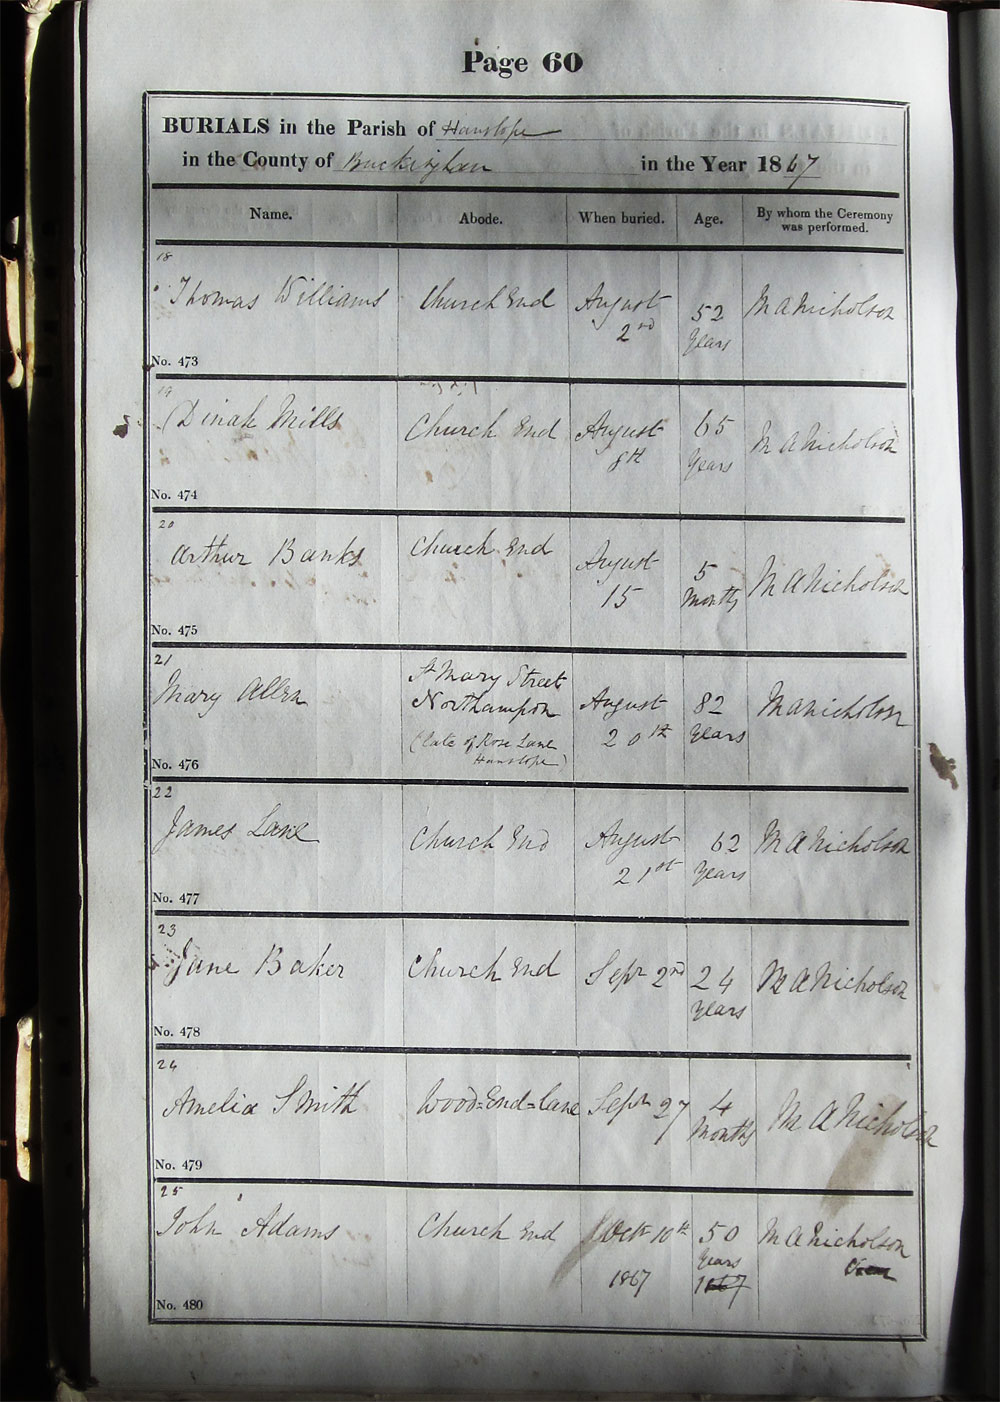 Page 60
BURIALS in the Parish of Hanslope
in the County of Buckingham in the Year 1867
Name. Abode. When buried. Age. By whom the Ceremony was performed.
18
Thomas Williams Church End August 2nd 52 Years M A Nicholson
No. 473
19
Dinah Mills Church End August 8th 65 Years M A Nicholson
No. 474
20
Arthur Banks Church End August 15 5 Months M A Nicholson
No. 475
21
Mary Allen St Mary Street Northampton (late of Rose Lane Hanslope) August 20th 82 Years M A Nicholson
No. 476
22
James Lane Church End August 21st 62 Years M A Nicholson
No. 477
23
Jane Baker Church End Sept 2nd 24 Years M A Nicholson
No. 478
24
Amelia Smith Wood=End=Lane Sept 27 4 Months M A Nicholson
No. 479
25
John Adams Church End Oct 10th 1867 50 Years 1867 M A Nicholson
No. 480